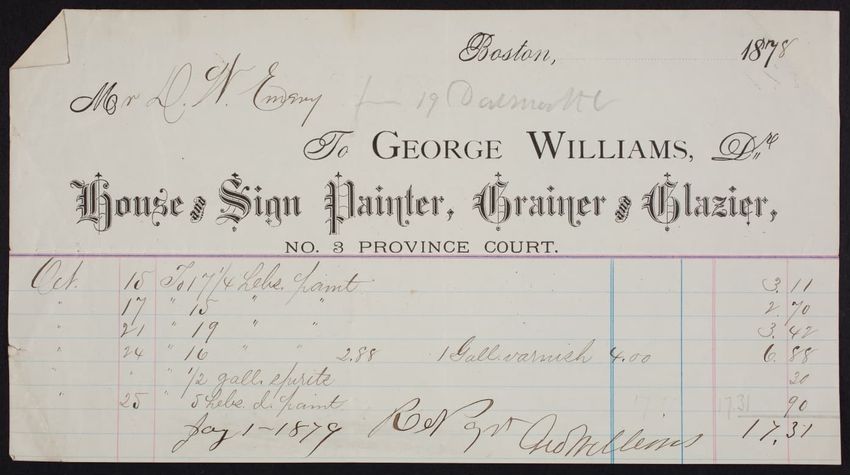 Boston, 1878
Mr D. W. Emery
To GEORGE WILLIAMS, Dr.
House and Sign Painter, Grainer and Glazier,
NO. 3 PROVINCE COURT.
Oct. 15 To 17 1/4 Lebs. paint 3.11
" 17 " 15 " " 2.70
" 21 " 19 " " 3.42
" 24 " 16 " " 2.88 1 Gall. varnish 4.00 6.88
" " " 1/2 gall. spirits 30
" 25 " 5 Lebs. d. paint 90
17 31
Jay 1 - 1879 Rec Pay't Geo Williams 17.31